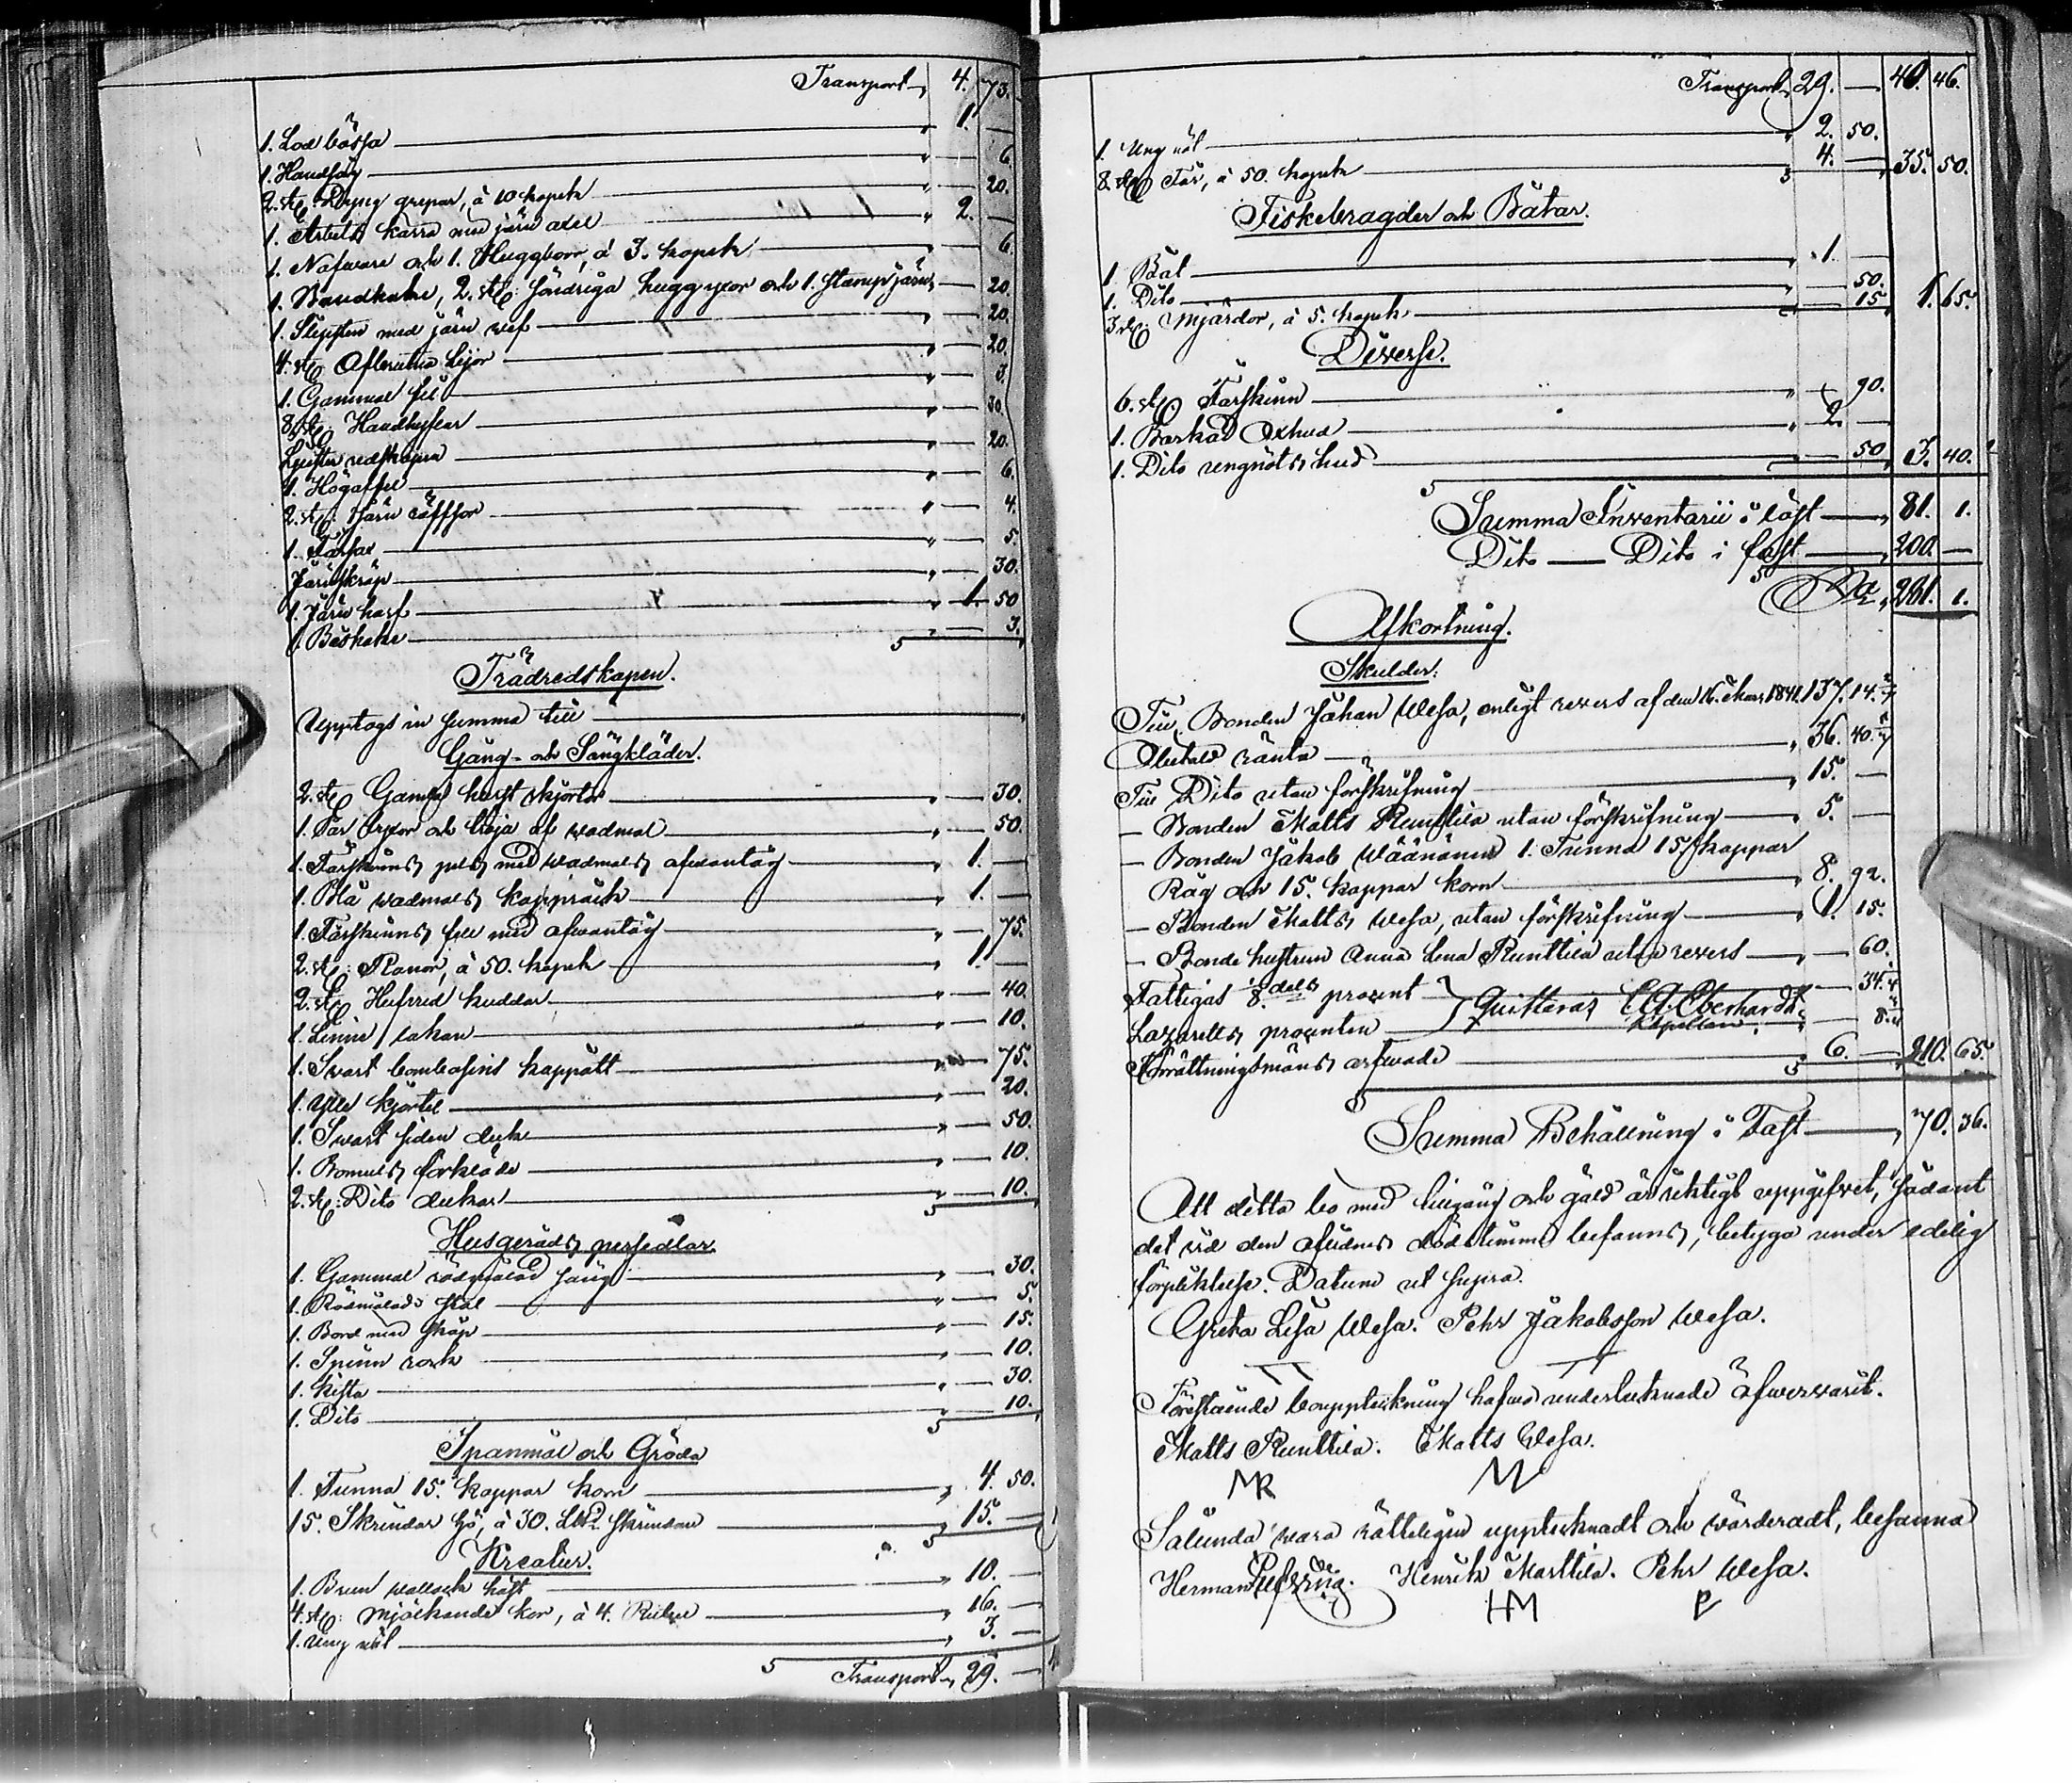 Transport 4. 73.
1. Lodbössa 1. —
1. Handsåg — 6.
2. st. Dyng grepar, à 10 kopek — 20.
1. Arbets kärra med järn axel 2. —
1. Nafware och 1. Huggborr, à 3. kopek — 6.
1. Bandhake, 2. st. söndriga huggyxor och 1. stampjärn — 20.
1. Slipsten med järn wef — 20.
4. st. Aflerittna Lijor — 20.
1. Gammal fil — 3.
8. st. Handhyflar — 30.
redskapen — 20.
1. Högaffel — 6.
2. st. Järn räffsor — 4.
1. Fårsax — 5.
Järnskräp — 30.
1. Järn harf 1. 50
1. Beshake — 3.
Trädredskapen.
Upptogs in summa till
Gång- och Sängkläder.
2. st. Gamla skjortor — 30.
1. Par byxor och tröja af wadmal — 50.
1. Fårskinns pels med wadmals öfwantåg 1. —
1. Blå wadmals kappråck 1. —
1. Fårskinns fell med öfwantåg — 75.
2. st. Ranor, à 50. kopek 1. —
2. st. Hufwud kuddar — 40.
1. Linne lakan — 10.
1. Swart bombasins kappått — 75.
1. Ylle kjortel — 20.
1. Swart siden duk — 50.
1. Bomulls förkläde — 10.
2. st. Dito dukar — 10.
Husgeråds persedlar.
1. Gammal rödmålad säng — 30.
1. Rödmålad stol — 5.
1. Bord med skåp — 15.
1. Spinn rock — 10.
1. Kista — 30.
1. Dito — 10.
Spanmål och Gröda
1. Tunna 15. kappar korn 4. 50.
15. Skrindor hö, à 30. skrindan 15. —
Kreatur.
1. Brun wallack häst 10. —
4. st. Mjölkande kor, à 4. Rubel 16. —
1. Ung nöt 3. —
Transport 29. —
Transport 29. — 40. 46.
1. Ung nöt 2. 50.
8. st. Får, à 50. kopek 4. — 35. 50.
Fiskebragder och Båtar.
1. Båt 1. —
1. Dito — 50.
3 st. Mjärdor, à 5. kopek — 15 1. 65.
Diverse.
6. st. Fårskinn — 90.
1. Barkad Oxhud 2. —
1. Dito ungnöts hud — 50 3. 40.
Summa Inventarii i löst 81. 1.
Dito — Dito i fast 200. —
S:a 281. 1.
Afkortning.
Skulder:
Till Bonden Johan Wesa, enligt revers af den 16. Mars 1841. 137. 14. 2/7
Obetald ränta 36. 40. 2/7
Till Dito utan förskrifning 15. —
— Bonden Matts Runttila utan förskrifning 5. —
— Bonden Jakob Wäänänen 1. Tunna 15 kappar
Råg och 15. kappar korn 8. 92.
— Bonden Matts Wesa, utan förskrifning 1. 15.
— Bonde hustrun Anna Lena Runttila utan revers — 60.
Fattigas 8.dels procent — 34.
Lazaretts procenten — 8.
Quitteras C. A. Eberhardt.
Kapellan.
Förrättningsmäns arfwode 6. — 210. 65.
Summa Behållning i Fast 70. 36.
Att detta bo med tillgång och gäld är riktigt uppgifwet, sådant
det wid den aflidnes dödstimma befanns, betyga under edelig
förpliktelse. Datum ut supra.
Greta Lisa Wesa. Pehr Jakobsson Wesa.
Förestående bouppteckning hafwa undertecknade öfwerwarit.
Matts Runttila. Matts Wesa.
MR M
Sålunda wara rätteligen upptecknadt och wärderadt, besanna
Herman Henrik Marttila. Pehr Wesa.
HM P